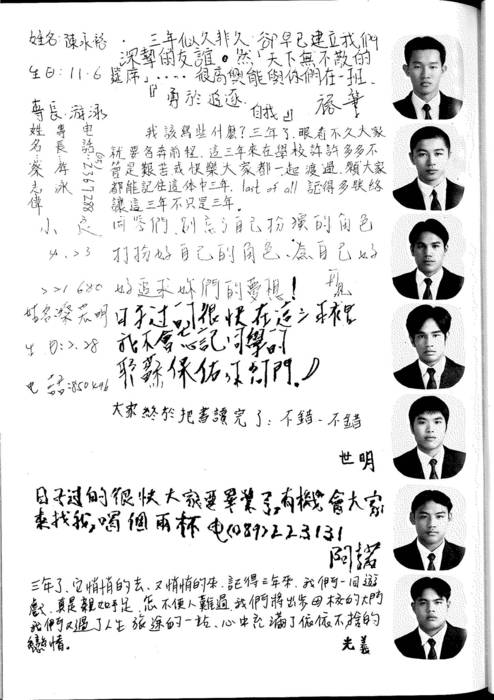 姓名:陳永裕
生日:11.6
專長:游泳
三年似久非久,卻早已建立我們
深摯的友誼。然「天下無不散的
筵席」,…… 很高興能與你們在一班.
『勇於追逐自我』 裕筆
姓名 蔡志偉
專長 游泳
電話
我該寫些什麼?三年了,眼看不久大家
就要各奔前程,這三年來在學校許許多多不
管是艱苦或快樂大家都一起渡過,願大家
都能記住這体中三年, last of all 記得多聯絡
讓這三年不只是三年。
小定
4.23
221680
同學們,別忘了自己扮演的角色
打扮好自己的角色,為自己好
好追求妳們的夢想!
姓名:榮明
生日:2.28
電話:850496
日子过的很快在這三年裡
我不會忘記同學的
耶穌保佑你們!
大家終於把書讀完了;不錯-不錯
世明
日子过的很快大家要畢業了,有機會大家
來找我,喝個兩杯 電(089)223131
阿諾
三年了,它悄悄的去,又悄悄的來,記得三年來,我們一同遊
戲,真是親如手足,怎不使人難過,我們將出步母校的大門
我們又過了人生旅途的一站,心中充滿了依依不捨的
戀情。
光義